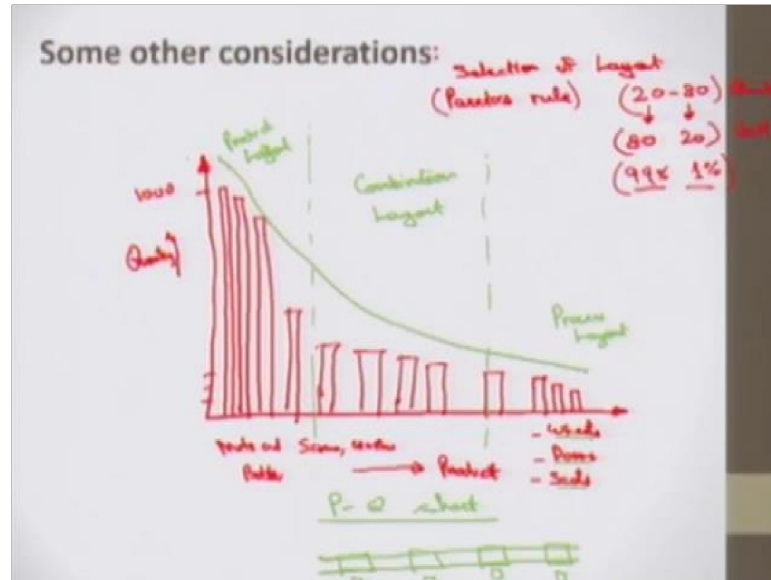 Some other considerations:
Selection of Layout
(Paretos rule) (20-80)
(80 20)
(99% 1%)
Product
Layout
Combination
Layout
1000
Quantity
Process
Layout
Nuts and Screws,
Bolts Product
- Wheels
- Doors
- Seats
P-Q chart